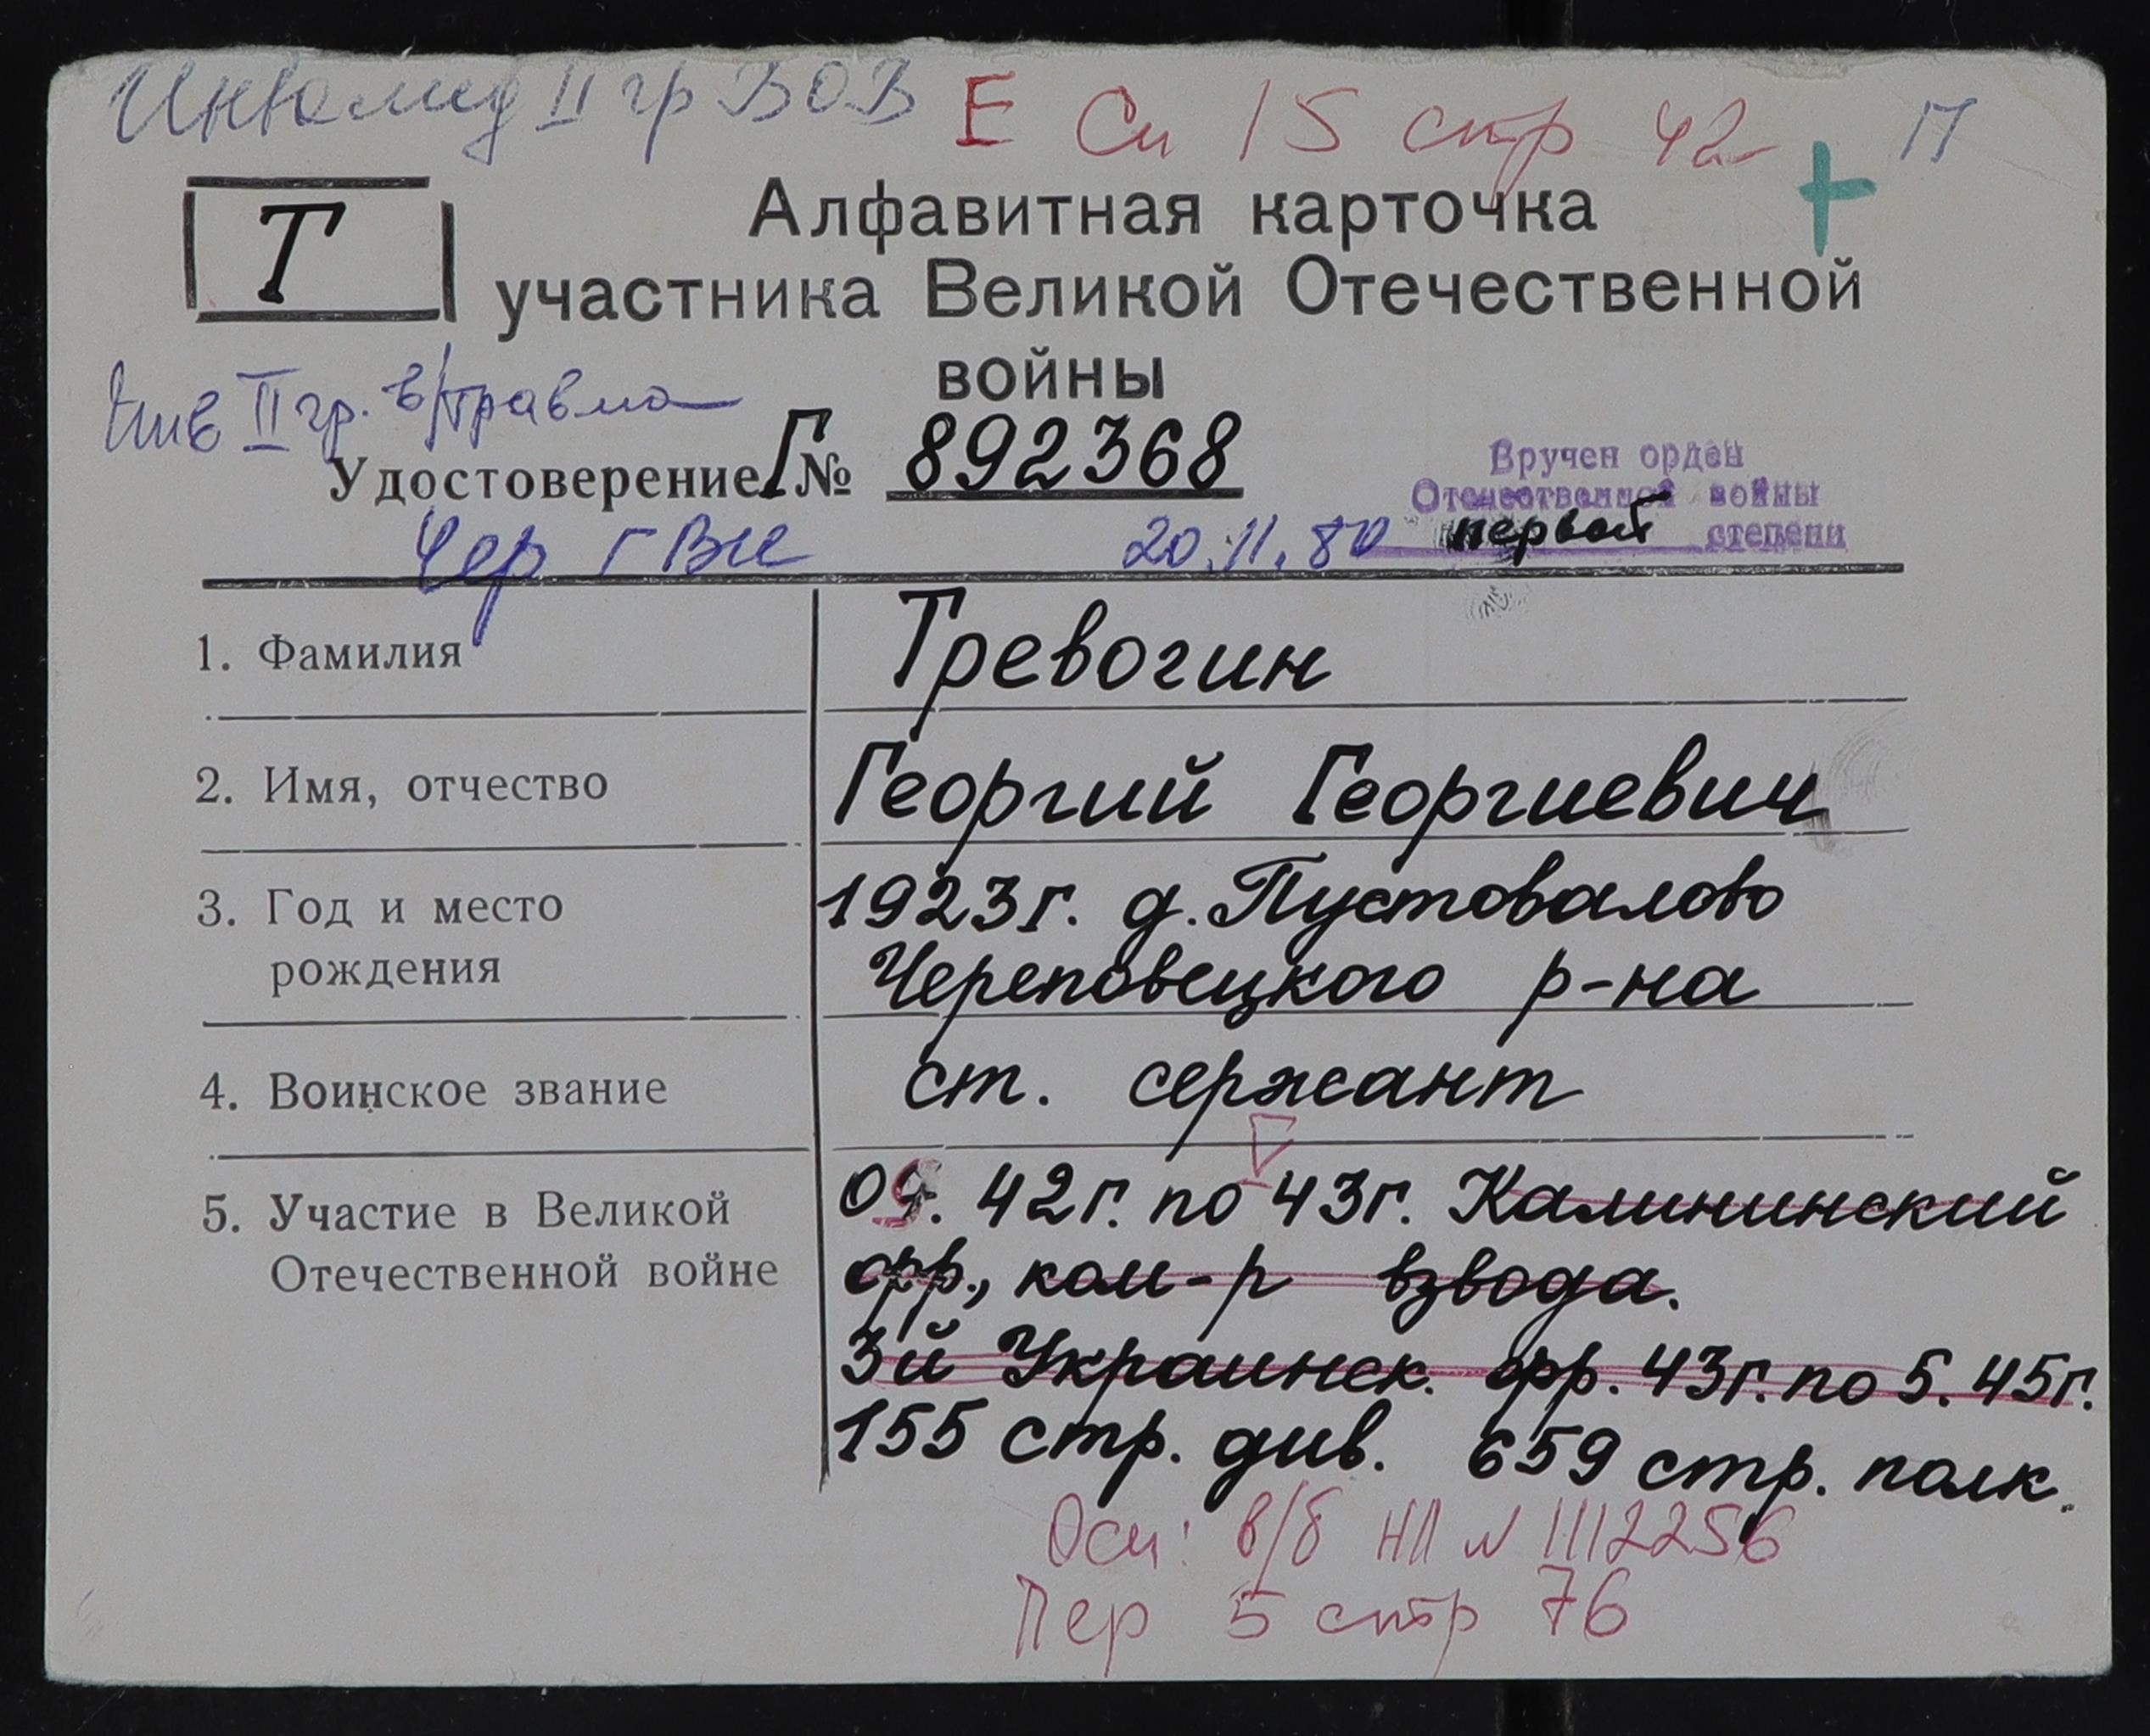 Инвалид II гр ВОВ Е Сп 15 стр 42 П
Т
+
Алфавитная карточка
участника Великой Отечественной
войны
Инв II гр. в/травма
Удостоверение Г № 892368
Вручен орден
Отечественной войны
первой степени
Чер ГВК 20.11.80
1. Фамилия Тревогин
2. Имя, отчество Георгий Георгиевич
3. Год и место 1923г. д. Пустовалово
рождения Череповецкого р-на
4. Воинское звание ст. сержант
5. Участие в Великой 09. 42г. по 43г. Калининский
Отечественной войне фр., ком-р взвода.
3й Украинск. фр. 43г. по 5. 45г.
155 стр. див. 659 стр. полк.
Осн: в/б НП N 1112256
Пер 5 стр 76